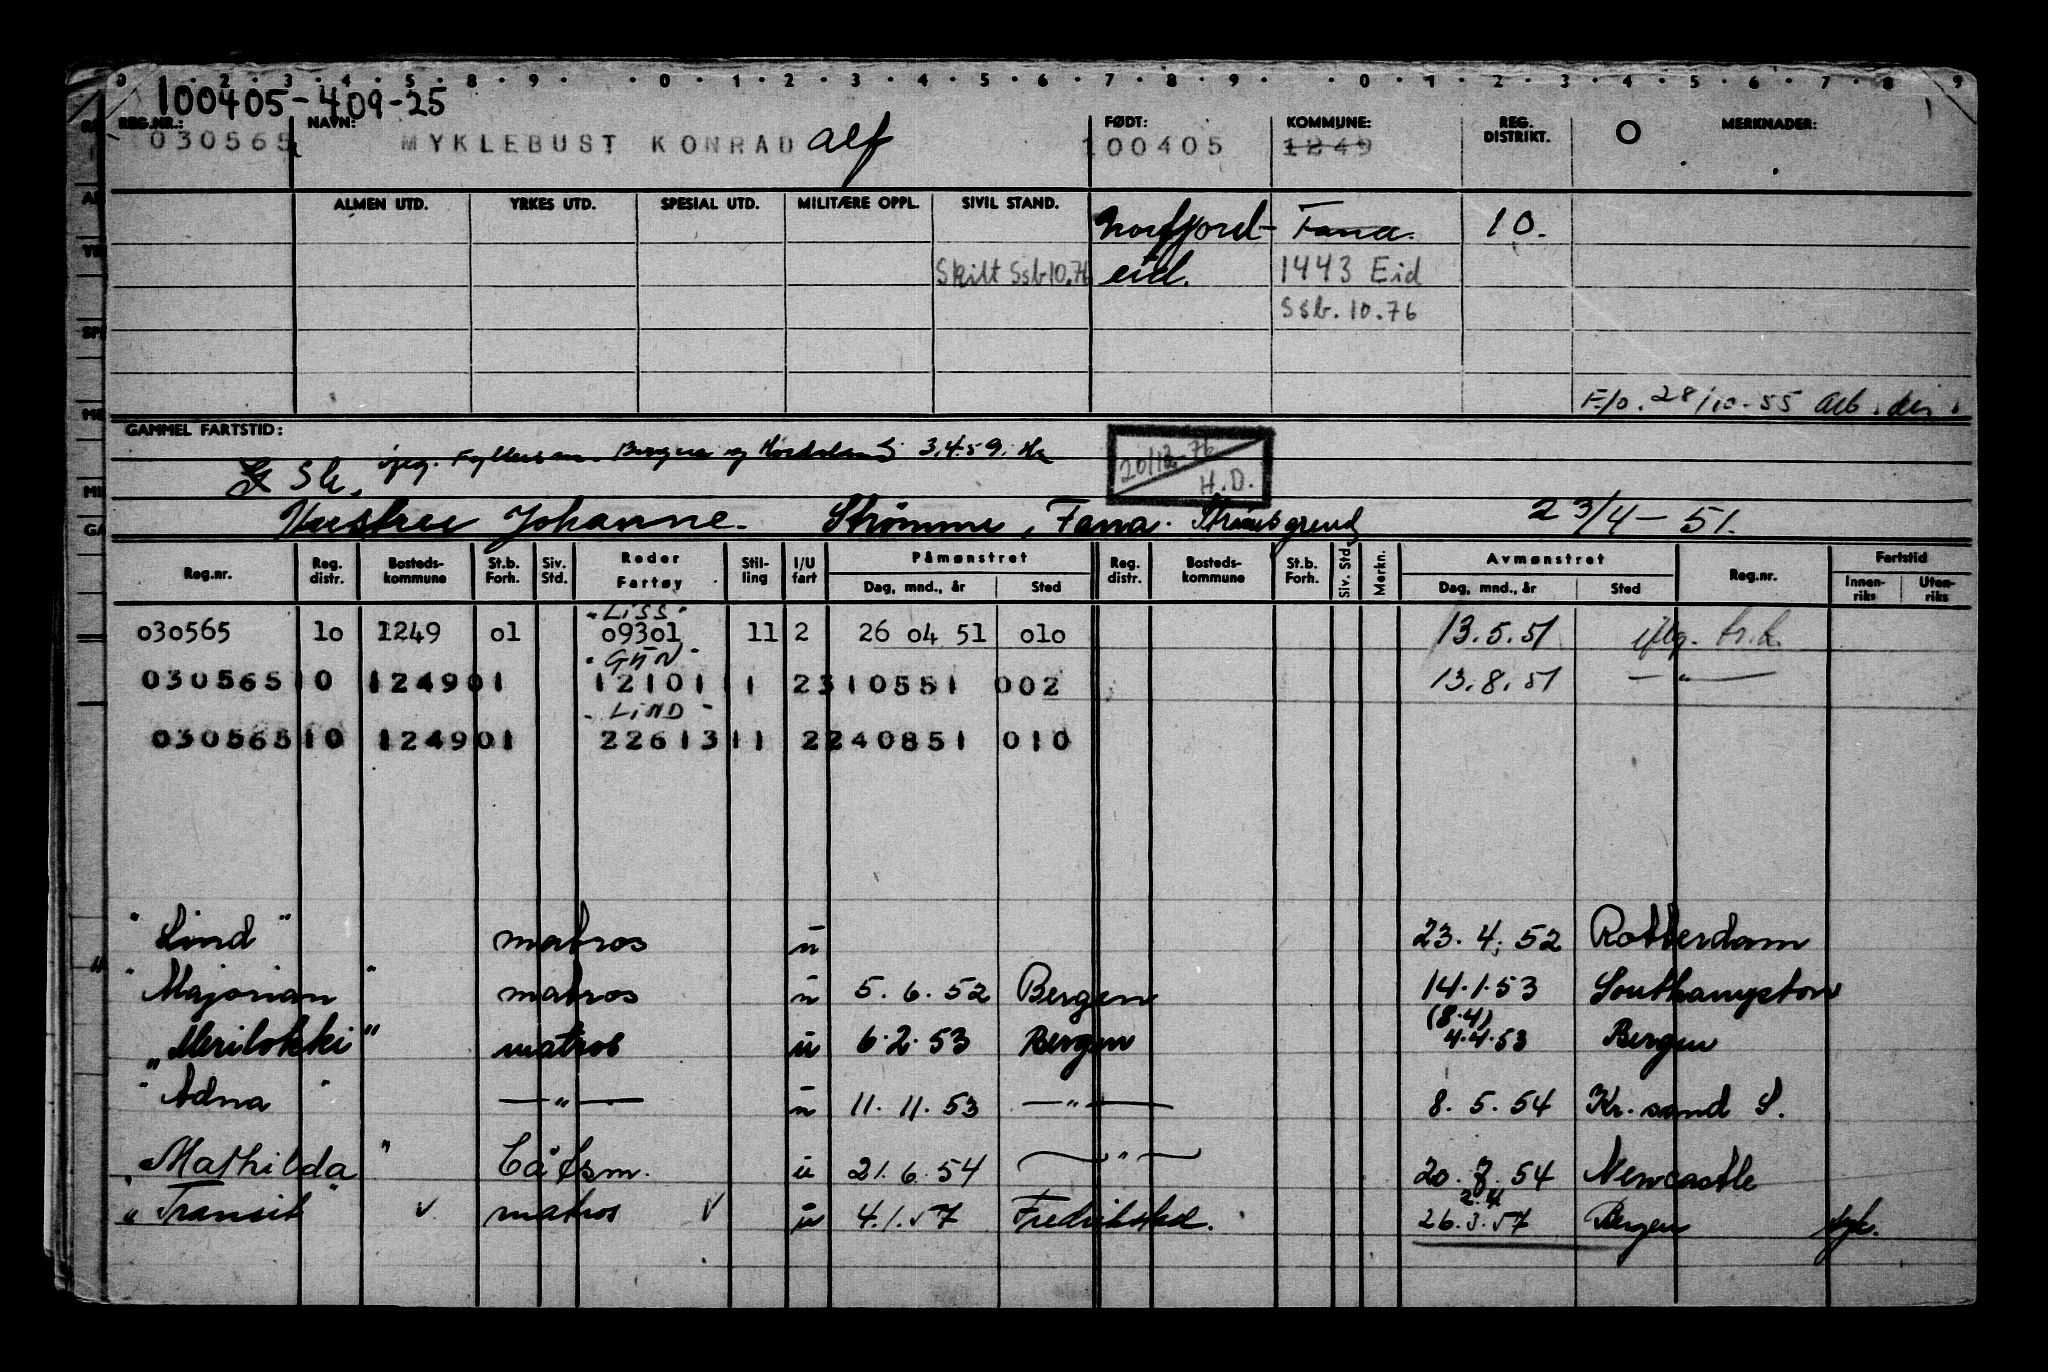 0 . 2 . 3 . 4 . 5 . 8 . 9 . . 0 . 1 . 2 . 3 . 4 . 5 . 6 . 7 . 8 . 9 . . 0 . 1 . 2 . 3 . 4 . 5 . 6 . 7 . 8 . 9
100405-409-25
REG.NR.: NAVN: FØDT: KOMMUNE: REG. DISTRIKT. O MERKNADER:
030565 MYKLEBUST KONRAD Alf 100405 1249
ALMEN UTD. YRKES UTD. SPESIAL UTD. MILITÆRE OPPL. SIVIL STAND.
Norfjord- Fana. 10.
Skilt Ssb 10.76 eid. 1443 Eid
Ssb. 10.76
F/o. 28/10-55 Arb. dir.
GAMMEL FARTSTID:
Bergen og Hordaland 3.4.59.
20/12-76
H.D.
Hustru Johanne. Strømme, Fana. 23/4-51.
Reg.nr. Reg. distr. Bosteds-kommune St.b. Forh. Siv. Std. Reder Fartøy Stil-ling I/U fart Påmønstret Dag, mnd., år Sted Reg. distr. Bosteds-kommune St.b. Forh. Siv. Std Merkn. Avmønstret Dag, mnd., år Sted Reg.nr. Fartstid Innen-riks Uten-riks
"LISS"
030565 1o 1249 o1 o93o1 11 2 26 o4 51 o1o 13.5.51
"GUN"
030565 10 1249 01 12101 11 2 310551 002 13.8.51 —"—
"LIND"
030565 10 1249 01 22613 11 2 240851 010
"Lind" matros u 23.4.52 Rotterdam
"Majorian" matros u 5.6.52 Bergen 14.1.53 Southampton
(8.4)
"Merilokki" matros u 6.2.53 Bergen 4.4.53 Bergen
"Adna" —"— u 11.11.53 —"— 8.5.54 Kr.sand S.
Mathilda" båtsm. u 21.6.54 —"— 20.7.54 Newcastle
2.4
"Transit" v matros v u 4.1.57 Fredrikstad. 26.3.57 Bergen syk.